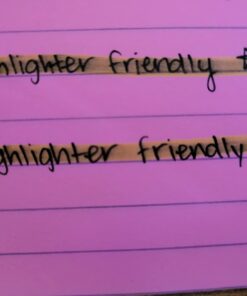 hlighter friendly
ghlighter friendly